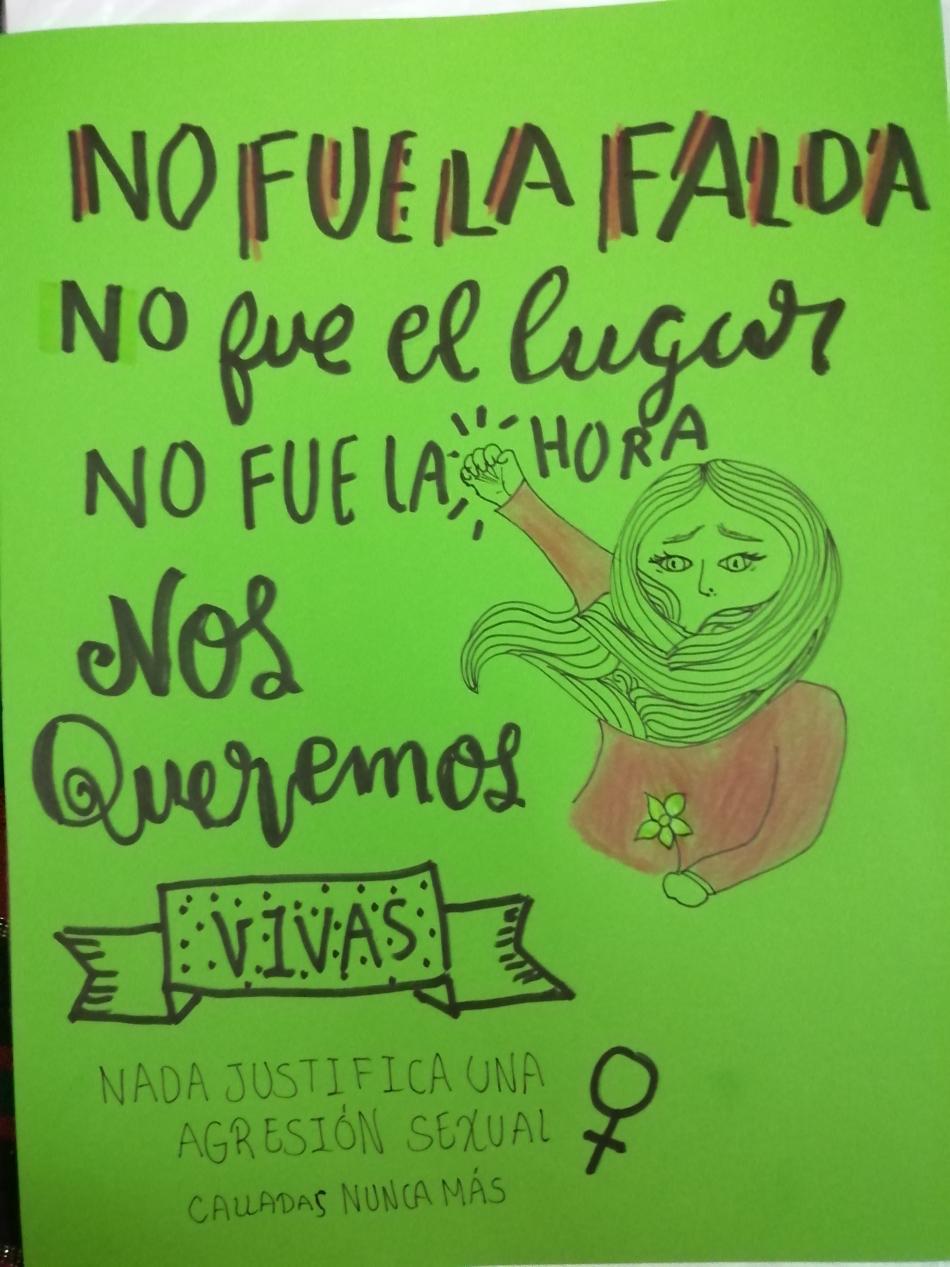 NO FUE LA FALDA
NO fue el lugar
NO FUE LA HORA
Nos
Queremos
VIVAS
NADA JUSTIFICA UNA
AGRESIÓN SEXUAL
CALLADAS NUNCA MÁS